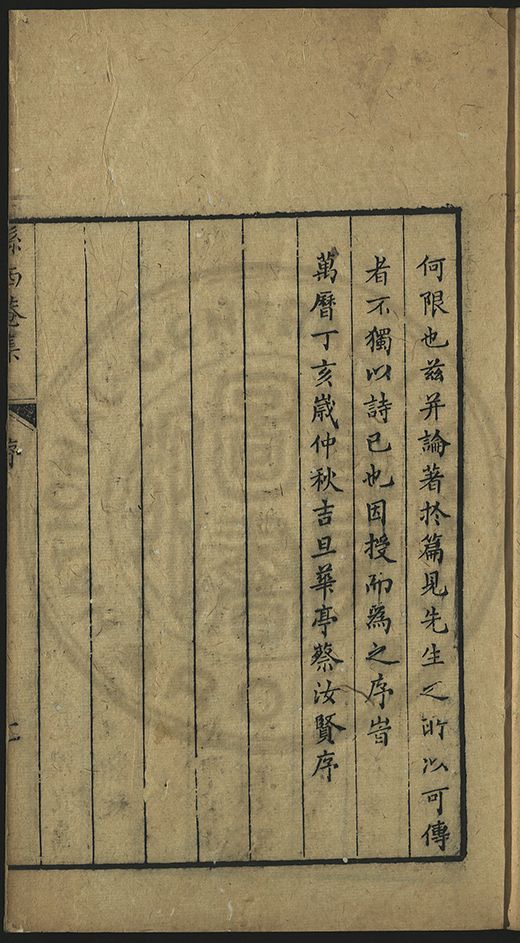 何限也茲并論著扵篇見先生之所以可傳
者不獨以詩已也因授而為之序旹
萬曆丁亥歲仲秋吉旦華亭蔡汝賢序
西菴集
序